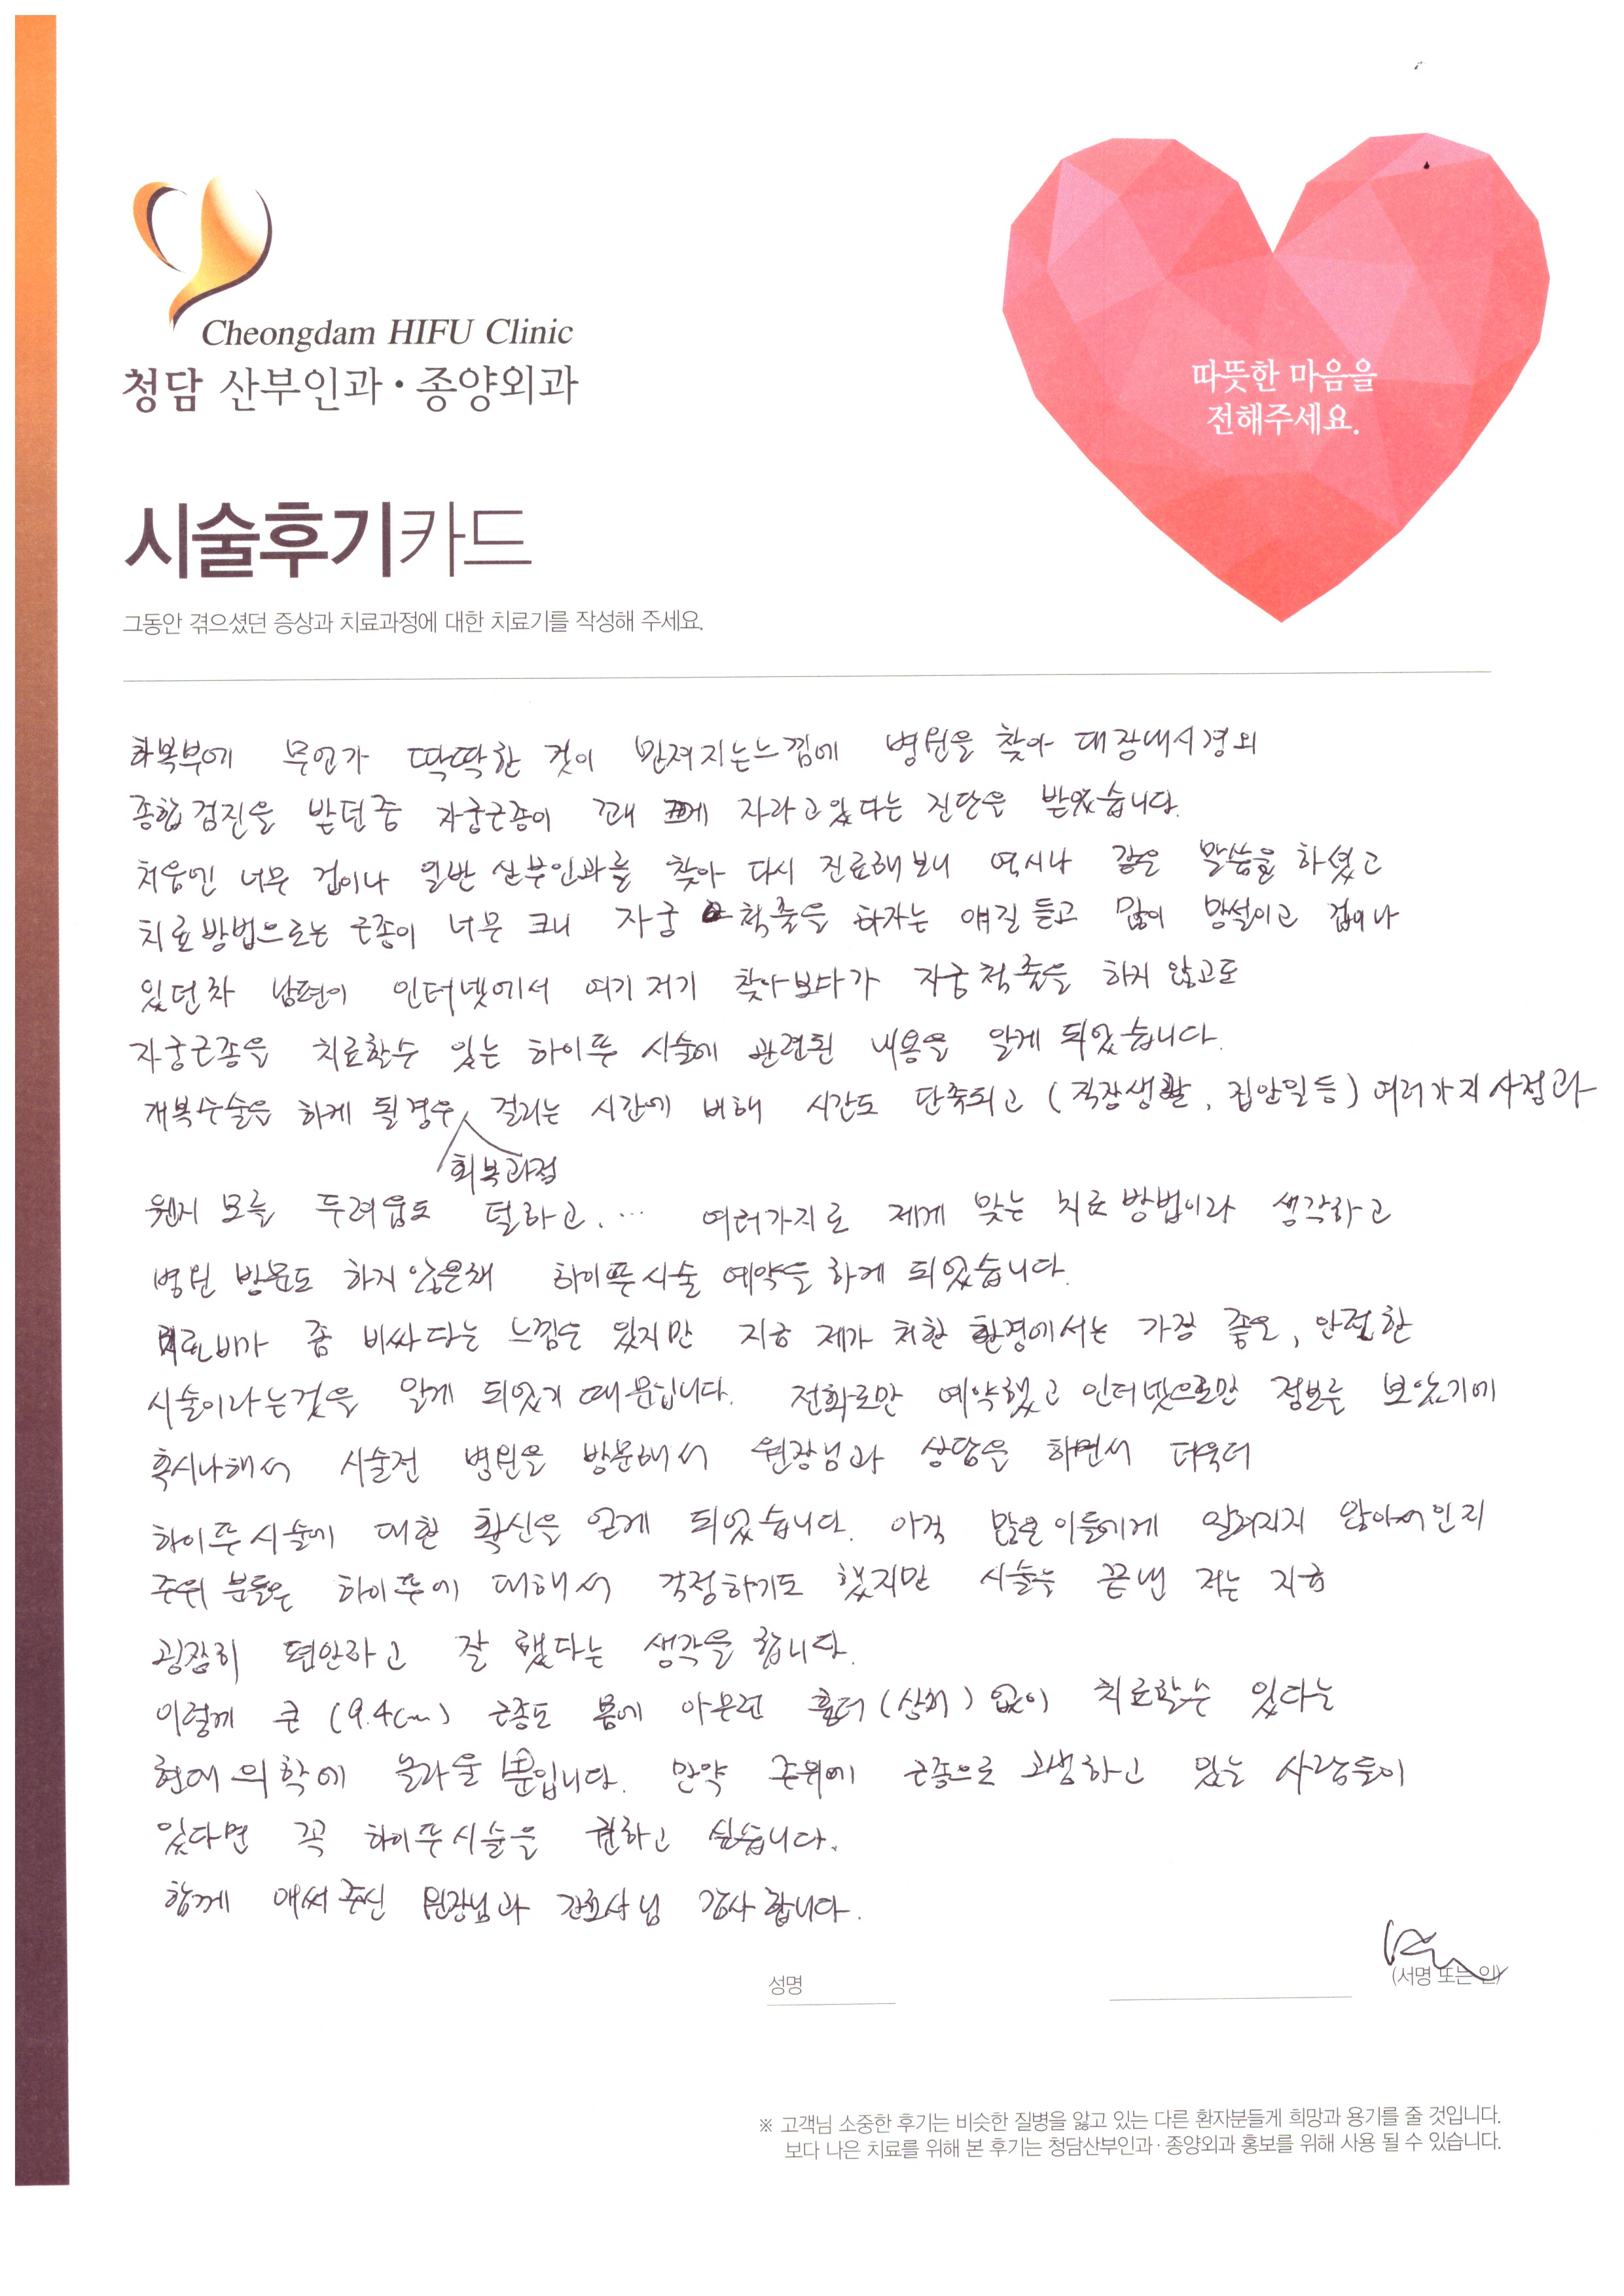 Cheongdam HIFU Clinic
청담 산부인과·종양외과
따뜻한 마음을
전해주세요.
시술후기카드
그동안 겪으셨던 증상과 치료과정에 대한 치료기를 작성해 주세요.
하복부에 무언가 딱딱한 것이 만져지는느낌에 병원을 찾아 대장내시경외
종합검진을 받던중 자궁근종이 꽤 크게 자라고있다는 진단을 받았습니다.
처음엔 너무 겁이나 일반 산부인과를 찾아 다시 진료해보니 역시나 같은 말씀을 하셨고
치료방법으로는 근종이 너무 크니 자궁 척출을 하자는 얘길 듣고 많이 망설이고 겁이나
있던차 남편이 인터넷에서 여기저기 찾아보다가 자궁척출을 하지 않고도
자궁근종을 치료할수 있는 하이푸 시술에 관련된 내용을 알게 되었습니다.
개복수술을 하게 될경우 걸리는 시간에 비해 시간도 단축되고 (직장생활, 집안일등) 여러가지사정과
회복과정
웬지 모를 두려움도 덜하고.… 여러가지로 제게 맞는 치료방법이라 생각하고
병원 방문도 하지않은채 하이푸시술 예약을 하게 되었습니다.
치료비가 좀 비싸다는 느낌은 있지만 지금 제가 처한 환경에서는 가장 좋은, 안전한
시술이라는것을 알게 되었기 때문입니다. 전화로만 예약했고 인터넷으로만 정보를 보았기에
혹시나해서 시술전 병원을 방문해서 원장님과 상담을 하면서 더욱더
하이푸시술에 대한 확신을 얻게 되었습니다. 아직 많은이들에게 알려지지 않아서인지
주위 분들은 하이푸에 대해서 걱정하기도 했지만 시술을 끝낸 저는 지금
굉장히 편안하고 잘 했다는 생각을 합니다.
이렇게 큰 (9.4cm) 근종도 몸에 아무런 흉터(상처) 없이 치료할수 있다는
현대의학에 놀라울 뿐입니다. 만약 주위에 근종으로 고생하고 있는 사람들이
있다면 꼭 하이푸시술을 권하고 싶습니다.
함께 애써주신 원장님과 간호사님 감사합니다.
성명
(서명 또는 인)
※ 고객님 소중한 후기는 비슷한 질병을 앓고 있는 다른 환자분들게 희망과 용기를 줄 것입니다.
보다 나은 치료를 위해 본 후기는 청담산부인과·종양외과 홍보를 위해 사용 될 수 있습니다.